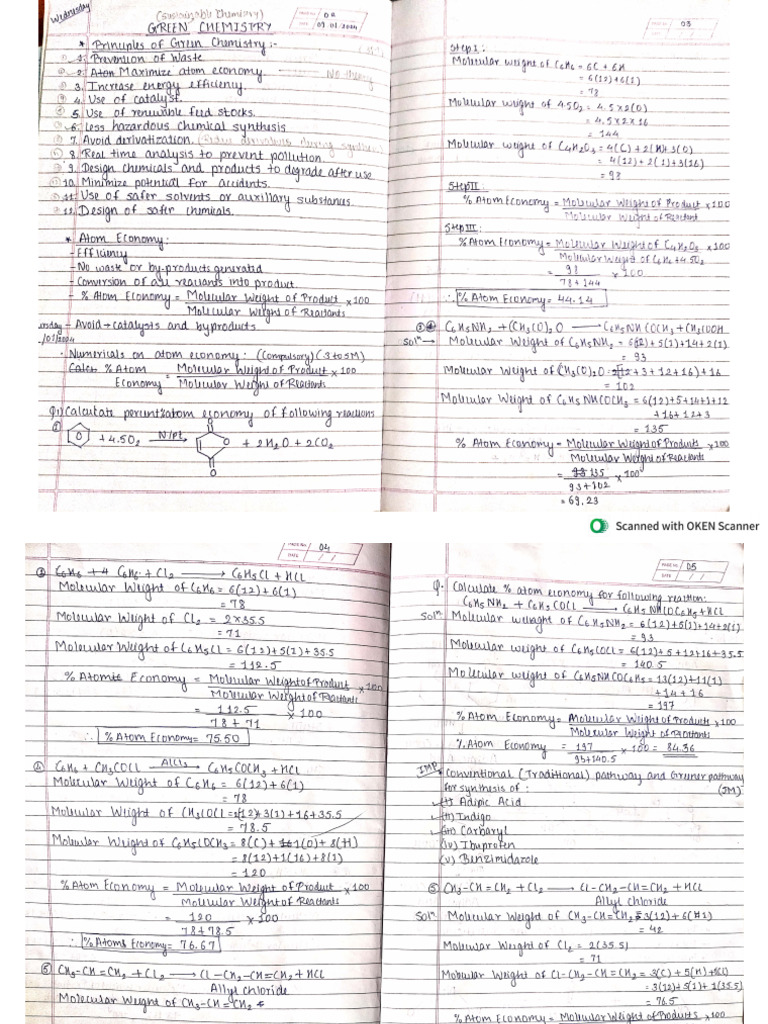 Wednesday
(Sustainable Chemistry)
GREEN CHEMISTRY
PAGE No. 02
DATE 09.01.2024
* Principles of Green Chemistry:-
1. Prevention of Waste
2. Atom Maximize atom economy. No theory
3. Increase energy efficiency.
4. Use of catalyst.
5. Use of renewable feed stocks.
6. Less hazardous chemical synthesis
7. Avoid derivatization.
8. Real time analysis to prevent pollution.
9. Design chemicals and products to degrade after use
10. Minimize potential for accidents.
11. Use of safer solvents or auxillary substances.
12. Design of safer chemicals.
* Atom Economy:
- Efficiency
- No waste or by-products generated
- Conversion of all reactants into product.
- % Atom Economy = Molecular Weight of Product x100
Molecular Weight of Reactants
- Avoid → catalysts and byproducts.
/01/2024
• Numericals on atom economy: (Compulsory) (3 to 5M)
Calcu % Atom Economy = Molecular Weight of Product x100
Molecular Weight of Reactants
Q1) Calculate percent atom economy of following reactions
① + 4.5O2 → O + 2H2O + 2CO2
O
O
PAGE No. 03
DATE / /
Step I:
Molecular weight of C6H6 = 6C + 6H
= 6(12)+6(1)
= 78
Molecular weight of 4.5O2 = 4.5x2(O)
= 4.5x2x16
= 144
Molecular Weight of C4H2O3 = 4(C)+2(H)+3(O)
= 4(12)+2(1)+3(16)
= 98
Step II:
% Atom Economy = Molecular Weight of Product x100
Molecular Weight of Reactant
Step III:
% Atom Economy = Molecular Weight of C4H2O3 x100
Molecular Weight of C6H6+4.5O2
= 98 x100
78+144
∴ % Atom Economy = 44.14
C6H5NH2 + (CH3CO)2O → C6H5NHCOCH3 + CH3COOH
Solⁿ → Molecular Weight of C6H5NH2 = 6(12)+5(1)+14+2(1)
= 93
Molecular Weight of (CH3CO)2O = 2(12+3+12+16)+16
= 102
Molecular Weight of C6H5NHCOCH3 = 6(12)+5+14+1+12
+16+12+3
= 135
% Atom Economy = Molecular Weight of Products x100
Molecular Weight of Reactants
= 135 x100
93+102
= 69.23
Scanned with OKEN Scanner
PAGE No. 04
DATE / /
③ C6H6 + Cl2 → C6H5Cl + HCl
Molecular Weight of C6H6 = 6(12)+6(1)
= 78
Molecular Weight of Cl2 = 2x35.5
= 71
Molecular Weight of C6H5Cl = 6(12)+5(1)+35.5
= 112.5
% Atomic Economy = Molecular Weight of Product x100
Molecular Weight of Reactants
= 112.5 x100
78+71
∴ % Atom Economy = 75.50
C6H6 + CH3COCl AlCl3 → C6H5COCH3 + HCl
Molecular Weight of C6H6 = 6(12)+6(1)
= 78
Molecular Weight of CH3COCl = 2(12)+3(1)+16+35.5
= 78.5
Molecular Weight of C6H5COCH3 = 8(C)+1(O)+8(H)
= 8(12)+1(16)+8(1)
= 120
% Atom Economy = Molecular Weight of Product x100
Molecular Weight of Reactants
= 120 x100
78+78.5
∴ % Atoms Economy = 76.67
⑤ CH3-CH=CH2 + Cl2 → Cl-CH2-CH=CH2 + HCl
Allyl chloride
Molecular Weight of CH3-CH=CH2 =
PAGE No. 05
DATE / /
Q. Calculate % atom economy for following reaction:
C6H5NH2 + C6H5COCl → C6H5NHCOC6H5 + HCl
Solⁿ Molecular weight of C6H5NH2 = 6(12)+5(1)+14+2(1)
= 93
Molecular weight of C6H5COCl = 6(12)+5+12+16+35.5
= 140.5
Molecular weight of C6H5NHCOC6H5 = 13(12)+11(1)
+14+16
= 197
% Atom Economy = Molecular Weight of Products x100
Molecular Weight of Reactants
% Atom Economy = 197 x100 = 84.36
93+140.5
IMP Conventional (Traditional) pathway and Greener pathway
for synthesis of: (5M)
(i) Adipic Acid
(ii) Indigo
(iii) Carbaryl
(iv) Ibuprofen
(v) Benzimidazole
⑤ CH3-CH=CH2 + Cl2 → Cl-CH2-CH=CH2 + HCl
Allyl chloride
Solⁿ Molecular Weight of CH3-CH=CH2 = 3(12)+6(1)
= 42
Molecular Weight of Cl2 = 2(35.5)
= 71
Molecular Weight of Cl-CH2-CH=CH2 = 3(C)+5(H)+(Cl)
= 3(12)+5(1)+1(35.5)
= 76.5
% Atom Economy = Molecular Weight of Products x100